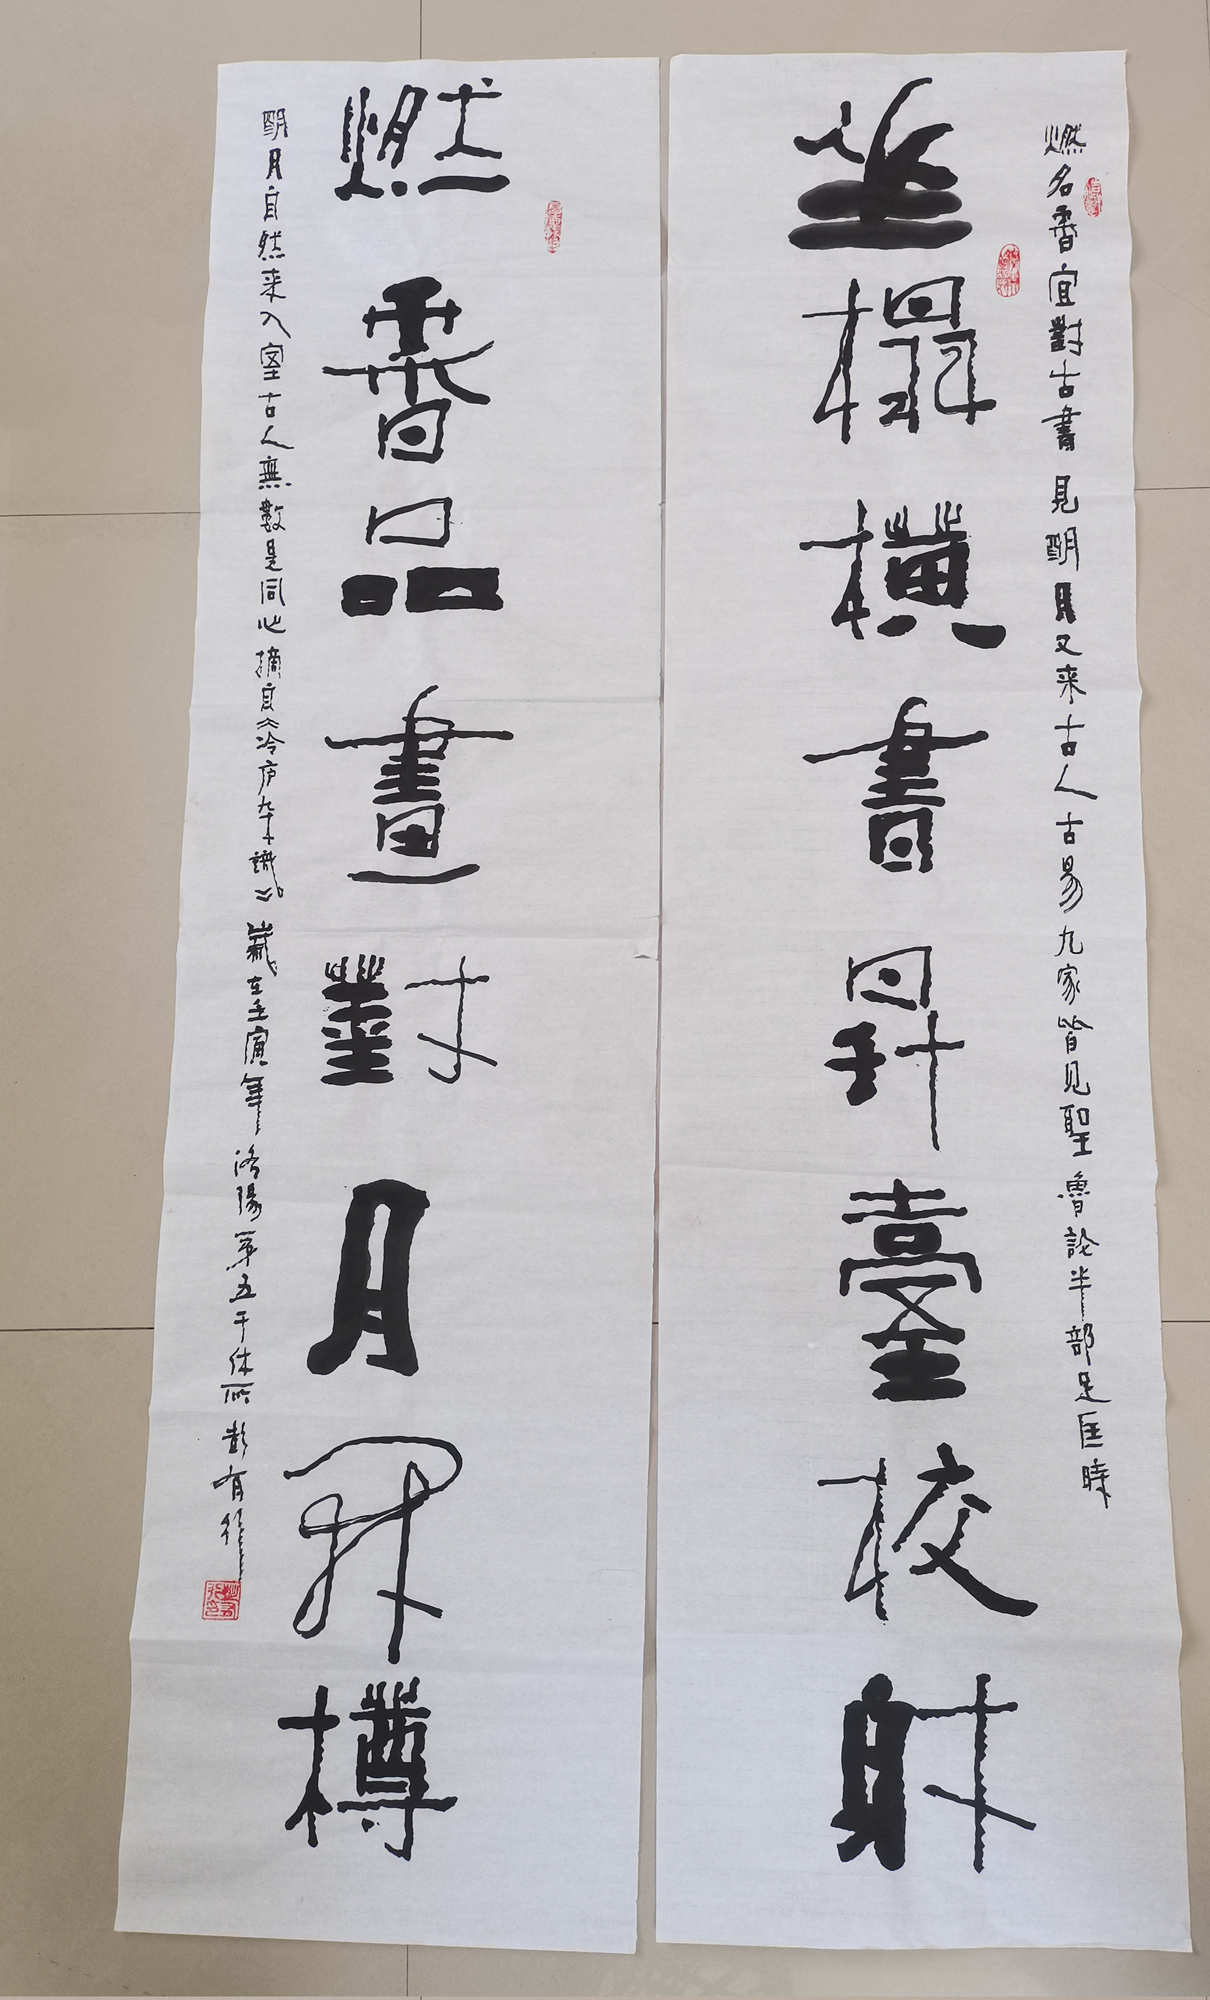 燃名香宜對古書見明月又来古人古易九家皆見聖魯論半部足匡時
坐榻橫書昇臺校射
燃香品畫對月開樽
明月自然来入室古人無數是同心摘自《冷庐杂識》歲在壬寅年洛陽第五干休所彭有行